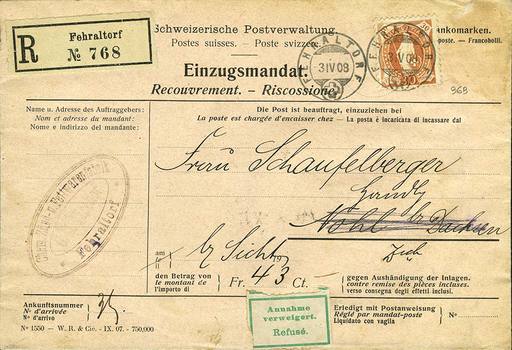 R
Fehraltorf
№ 768
Schweizerische Postverwaltung.
Postes suisses. – Poste svizzere
Einzugsmandat.
Recouvrement. – Riscossione
FEHRALTORF
3 IV 08
FEHRALTORF
IV 08
ankomarken.
poste. – Francobolli.
968
Name u. Adresse des Auftraggebers:
Nom et adresse du mandant:
Nome e indirizzo del mandante:
Die Post ist beauftragt, einzuziehen bei
La poste est chargée d'encaisser chez – La posta è incaricata di incassare dal
Frau Schaufelberger
Fehraltorf
am
le
il
Sicht
den Betrag von
le montant de
l'importo di
Fr. 43 Ct.
gegen Aushändigung der Inlagen.
contre remise des pièces incluses.
verso consegna degli effetti inclusi.
Annahme
verweigert.
Refusé.
Ankunftsnummer
N° d'arrivée
N° d'arrivo
Erledigt mit Postanweisung
Réglé par mandat-poste
Liquidato con vaglia
N°
N° 1550 – W. R. & Cie. - IX. 07. - 750,000